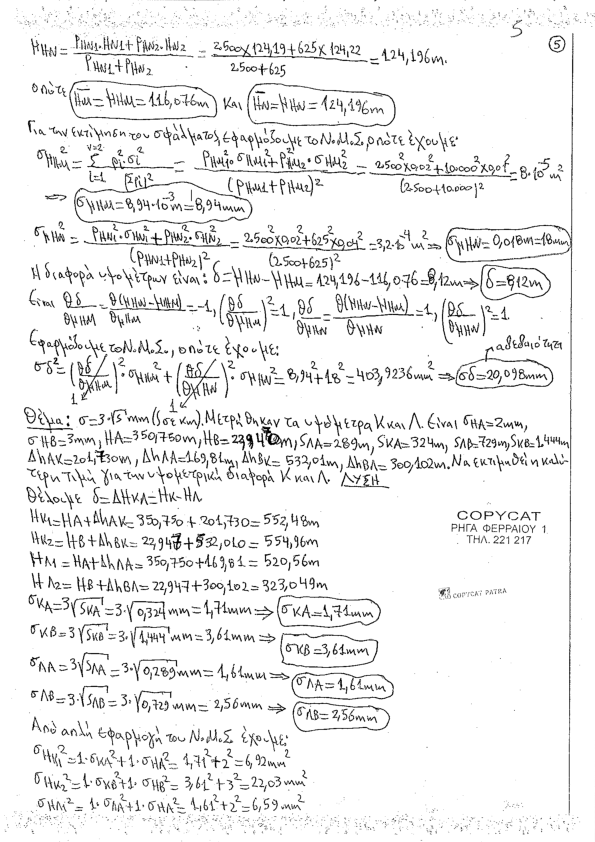 5
⑤
H_HN = (P_HN1·HN1 + P_HN2·HN2)/(P_HN1 + P_HN2) = (2.500×124,19 + 625×124,22)/(2.500 + 625) = 124,196m.
οπότε H̄_M = H_HM = 116,076m και H̄_N = H_HN = 124,196m
Για την εκτίμηση του σφάλματος εφαρμόζουμε το Ν.Μ.Σ, οπότε έχουμε:
σ_HHM² = Σ(i=1, ν=2) Pi²·σi²/[ΣPi]² = (P_HM1²·σ_HM1² + P_HM2²·σ_HM2²)/(P_HM1 + P_HM2)² = (2.500²×0,02² + 10.000²×0,01²)/(2.500 + 10.000)² = 8·10⁻⁵ m²
⇒ σ_HHM = 8,94·10⁻³m = 8,94mm
σ_HHN² = (P_HN1²·σ_HN1² + P_HN2²·σ_HN2²)/(P_HN1 + P_HN2)² = (2.500²×0,02² + 625²×0,04²)/(2.500 + 625)² = 3,2·10⁻⁴ m² ⇒ σ_HHN = 0,018m = 18mm
Η διαφορά υψομέτρων είναι: δ = H_HN − H_HM = 124,196 − 116,076 = 8,12m ⇒ δ = 8,12m
Είναι θδ/θH_HM = θ(H_HN − H_HM)/θH_HM = −1, (θδ/θH_HM)² = 1, θδ/θH_HN = θ(H_HN − H_HM)/θH_HN = 1, (θδ/θH_HN)² = 1
Εφαρμόζουμε το Ν.Μ.Σ., οπότε έχουμε:
αβεβαιότητα
σδ² = (θδ/θH_HM)²·σ_HHM² + (θδ/θH_HN)²·σ_HHN² = 8,94² + 18² = 403,9236mm² ⇒ σδ = 20,098mm
1 1
Θέμα: σ = 3·√S mm (S σε km). Μετρήθηκαν τα υψόμετρα Κ και Λ. Είναι σ_HA = 2mm,
σ_HB = 3mm, HA = 350,750m, HB = 22,947m, SΛA = 289m, SKA = 324m, SΛB = 729m, SKB = 1.444m
ΔhAK = 201,730m, ΔhΛA = 169,81m, ΔhBK = 532,01m, ΔhBΛ = 300,102m. Να εκτιμηθεί η καλύ-
τερη τιμή για την υψομετρική διαφορά Κ και Λ. ΛΥΣΗ
Θέλουμε δ = ΔHKΛ = HK − HΛ
HK1 = HA + ΔhAK = 350,750 + 201,730 = 552,48m
HK2 = HB + ΔhBK = 22,947 + 532,010 = 554,96m
HΛ1 = HA + ΔhΛA = 350,750 + 169,81 = 520,56m
HΛ2 = HB + ΔhBΛ = 22,947 + 300,102 = 323,049m
σKA = 3√SKA = 3·√0,324 mm = 1,71mm ⇒ σKA = 1,71mm
σKB = 3√SKB = 3·√1,444 mm = 3,61mm ⇒ σKB = 3,61mm
σΛA = 3√SΛA = 3·√0,289 mm = 1,61mm ⇒ σΛA = 1,61mm
σΛB = 3·√SΛB = 3·√0,729 mm = 2,56mm ⇒ σΛB = 2,56mm
Από απλή εφαρμογή του Ν.Μ.Σ έχουμε:
σHK1² = 1·σKA² + 1·σHA² = 1,71² + 2² = 6,92mm²
σHK2² = 1·σKB² + 1·σHB² = 3,61² + 3² = 22,03mm²
σHΛ1² = 1·σΛA² + 1·σHA² = 1,61² + 2² = 6,59mm²
COPYCAT
ΡΗΓΑ ΦΕΡΡΑΙΟΥ 1
ΤΗΛ. 221 217
COPYCAT PATRA